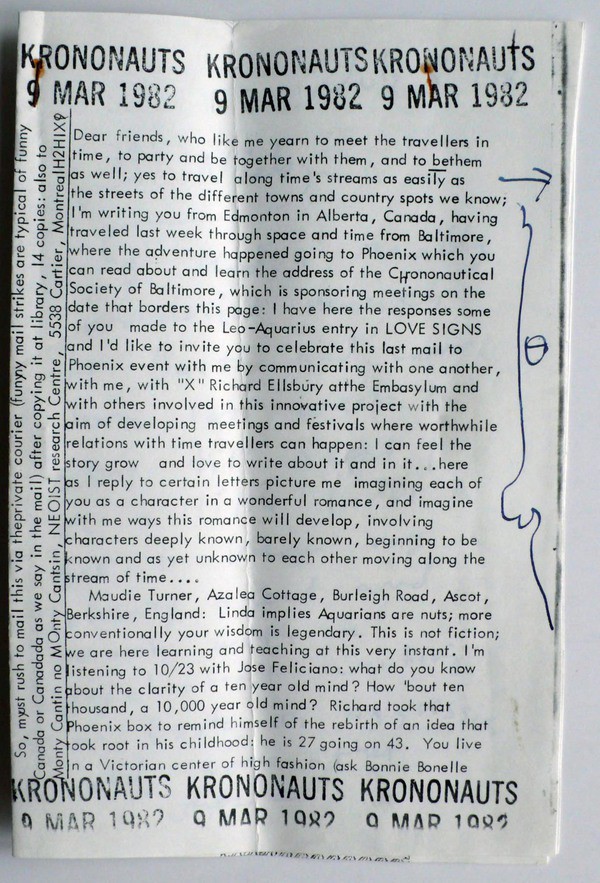 KRONONAUTS KRONONAUTS KRONONAUTS
9 MAR 1982 9 MAR 1982 9 MAR 1982
Dear friends, who like me yearn to meet the travellers in
time, to party and be together with them, and to bethem
as well; yes to travel along time's streams as easily as
the streets of the different towns and country spots we know;
I'm writing you from Edmonton in Alberta, Canada, having
traveled last week through space and time from Baltimore,
where the adventure happened going to Phoenix which you
can read about and learn the address of the Chrononautical
Society of Baltimore, which is sponsoring meetings on the
date that borders this page: I have here the responses some
of you made to the Leo-Aquarius entry in LOVE SIGNS
and I'd like to invite you to celebrate this last mail to
Phoenix event with me by communicating with one another,
with me, with "X" Richard Ellsbury atthe Embasylum and
with others involved in this innovative project with the
aim of developing meetings and festivals where worthwhile
relations with time travellers can happen: I can feel the
story grow and love to write about it and in it...here
as I reply to certain letters picture me imagining each of
you as a character in a wonderful romance, and imagine
with me ways this romance will develop, involving
characters deeply known, barely known, beginning to be
known and as yet unknown to each other moving along the
stream of time....
Maudie Turner, Azalea Cottage, Burleigh Road, Ascot,
Berkshire, England: Linda implies Aquarians are nuts; more
conventionally your wisdom is legendary. This is not fiction;
we are here learning and teaching at this very instant. I'm
listening to 10/23 with Jose Feliciano: what do you know
about the clarity of a ten year old mind? How 'bout ten
thousand, a 10,000 year old mind? Richard took that
Phoenix box to remind himself of the rebirth of an idea that
took root in his childhood: he is 27 going on 43. You live
in a Victorian center of high fashion (ask Bonnie Bonelle
KRONONAUTS KRONONAUTS KRONONAUTS
9 MAR 1982 9 MAR 1982 9 MAR 1982
So, must rush to mail this via theprivate courier (funyny mail strikes are typical of funny
Canada or Canadada as we say in the mail) after copying it at library, 14 copies: also to
Monty Cantin no MOnty Cantsin, NEOIST research Centre, 5538 Cartier, Montreal H2H1X9